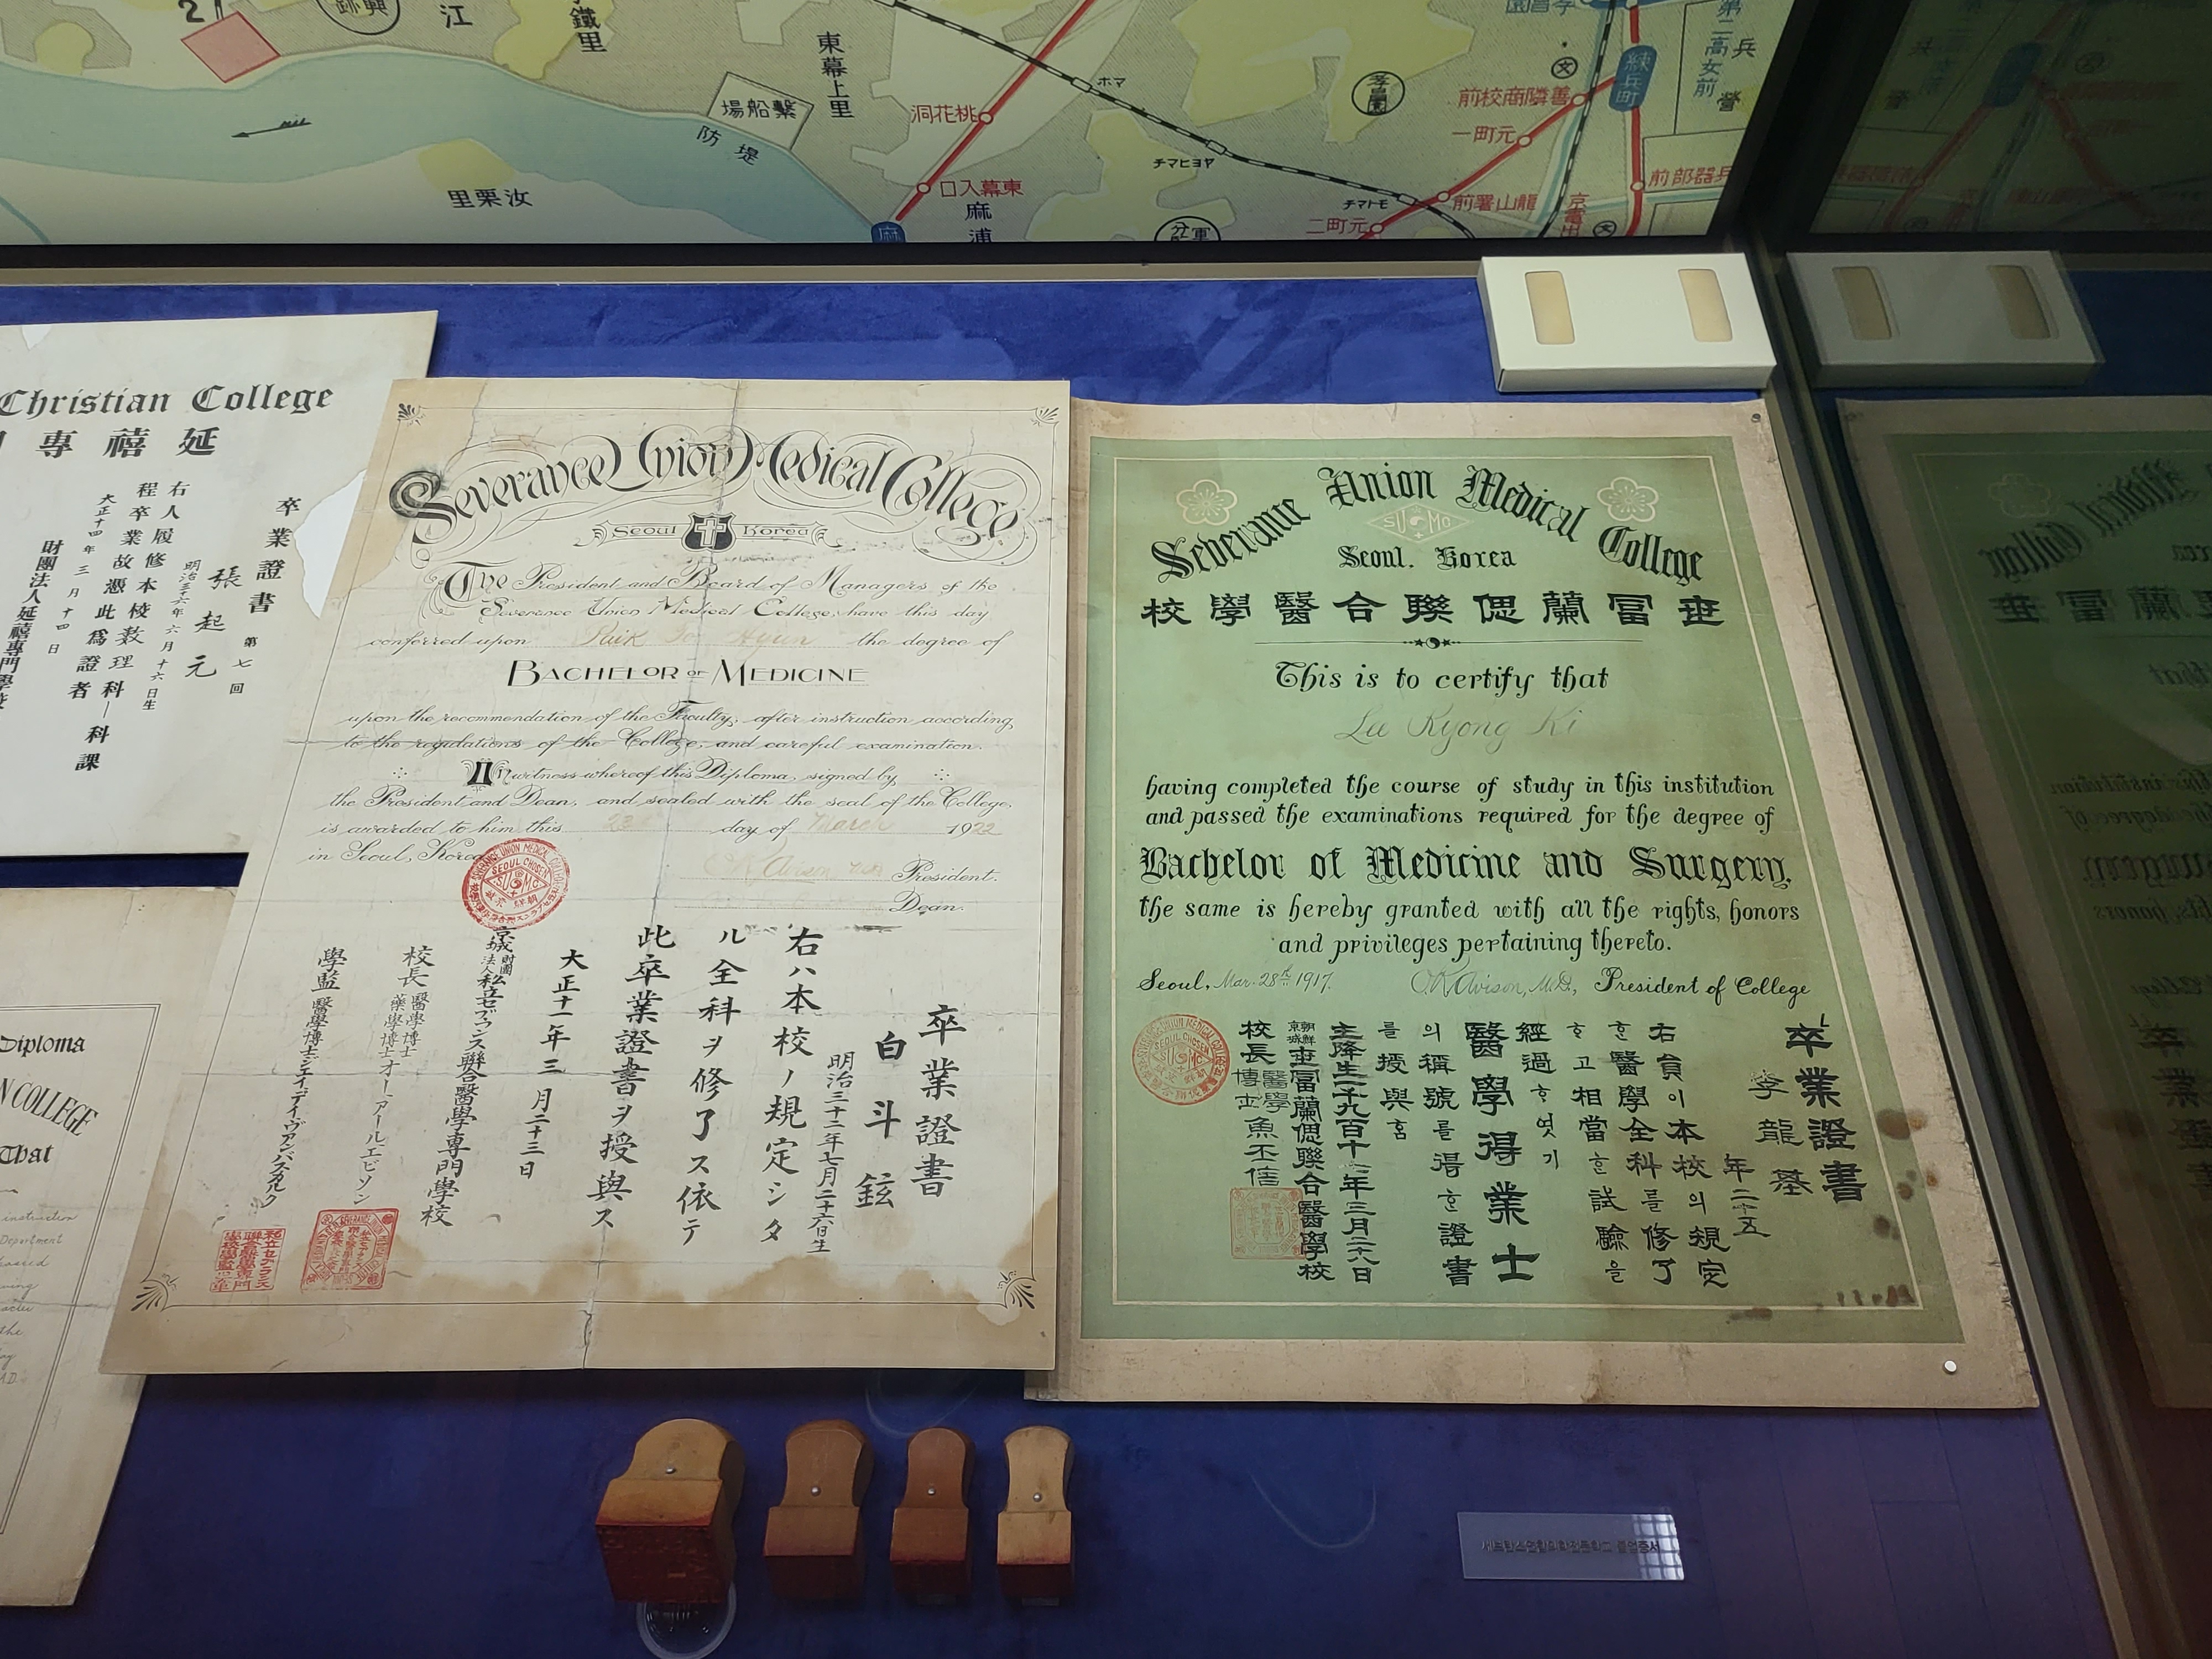 2
江
鐵里
東幕上里
場船繫
防堤
里栗汝
洞花桃
口入幕東
麻浦
ホマ
チマヒヨヤ
チマトモ
孝昌園
前校商隣善
一町元
前署山龍
二町元
練兵町
第二高女前
兵營
前部器兵
Christian College
專禧延
卒業證書
第七回
張起元
明治三十六年六月十六日生
右人履修本校數理科一科課
程卒業故憑此爲證者
大正十四年三月十四日
財團法人延禧專門學校
Diploma
N COLLEGE
That
instruction
Department
the
Severance Union Medical College
Seoul Korea
The President and Board of Managers of the
Severance Union Medical College, have this day
conferred upon Paik Too Hyun the degree of
BACHELOR OF MEDICINE
upon the recommendation of the Faculty, after instruction according
to the regulations of the College, and careful examination.
In witness whereof this Diploma, signed by
the President and Dean, and sealed with the seal of the College,
is awarded to him this 23rd day of March 1922
in Seoul, Korea
O R Avison M.D. President.
Dean.
SEVERANCE UNION MEDICAL COLLEGE
SEOUL CHOSEN
SUMC
卒業證書
白斗鉉
明治三十二年七月二十六日生
右ハ本校ノ規定シタ
ル全科ヲ修了ス依テ
此卒業證書ヲ授與ス
大正十一年三月二十三日
京城財團法人私立セブランス聯合醫學專門學校
校長醫學博士藥學博士オーアールエビソン
學監醫學博士ジエイデイヴアンバスカルク
Severance Union Medical College
SUMC
Seoul. Korea
校學醫合聯偲蘭富世
This is to certify that
Lee Ryong Ki
having completed the course of study in this institution
and passed the examinations required for the degree of
Bachelor of Medicine and Surgery,
the same is hereby granted with all the rights, honors
and privileges pertaining thereto.
Seoul, Mar. 28th 1917. O R Avison, M.D., President of College
卒業證書
李龍基
年二十五
右員이本校의規定
한醫學全科를修了
하고相當한試驗을
經過하엿기
醫學得業士
의稱號를得한證書
를授與홈
主降生一千九百十七年三月二十八日
朝鮮京城世富蘭偲聯合醫學校
校長醫學博士魚丕信
SEOUL CHOSEN
세브란스연합의학전문학교 졸업증서